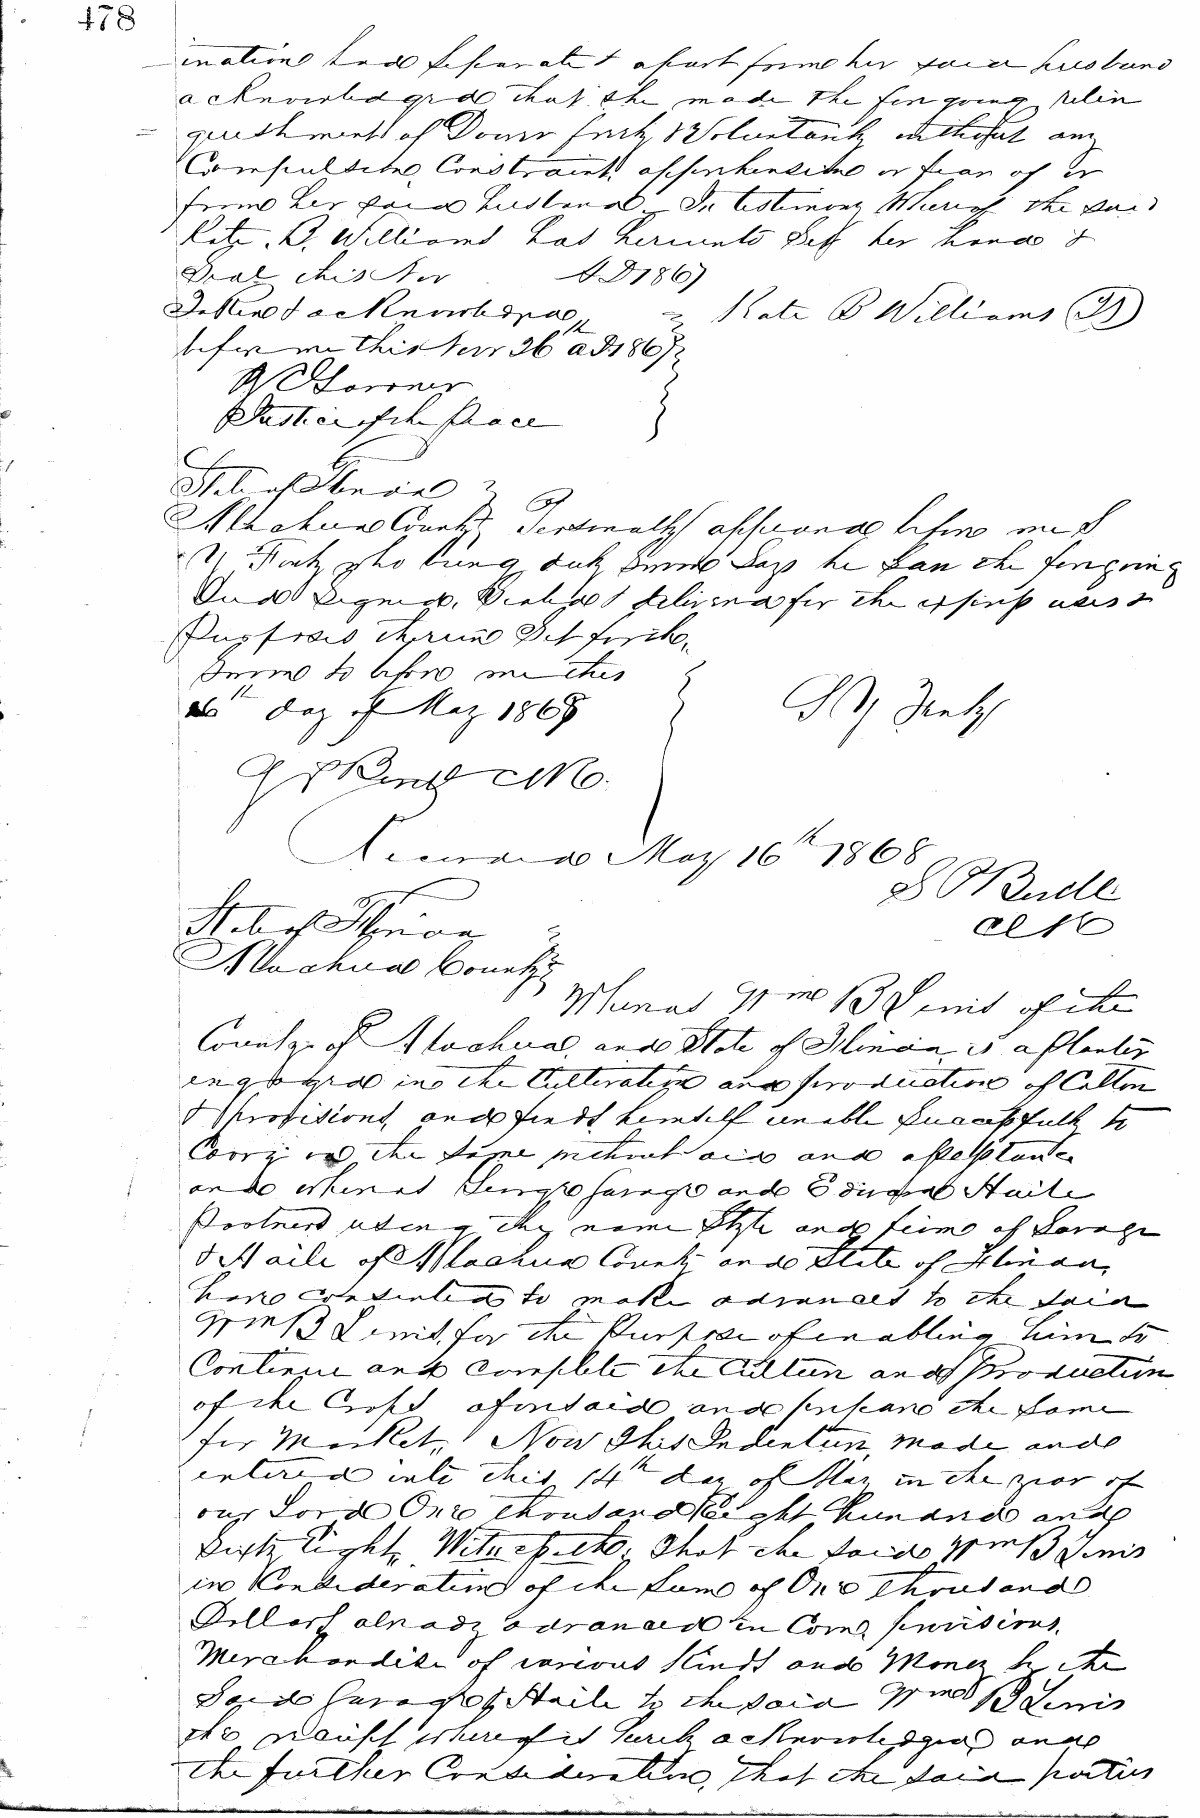 478
ination had separate & apart from her said husband
acknowledged that she made the foregoing relin
quishment of Dower freely & Voluntarily without any
Compulsion, Constraint, apprehension or fear of or
from her said husband. In testimony Whereof the said
Kate B. Williams has hereunto Set her hand &
Seal this Nov A D 1867
Taken & acknowledged Kate B Williams
before me this Nov 26th A D 1867
Justice of the Peace
State of Florida
Alachua County, Personally appeared before me S
Y who being duly sworn Says he Saw the foregoing
Deed Signed, Sealed & delivered for the express uses &
Purposes therein Set forth,
Sworn to before me this
16th day of May 1868 S Y
Clk.
Recorded May 16th 1868
Clk
State of Florida
Alachua County
Whereas Wm B Lewis of the
County of Alachua, and State of Florida, is a Planter
engaged in the Cultivation and production of Cotton
& provisions, and finds himself unable Successfully to
Carry on the Same without aid and assistance
and whereas George Savage and Edward Haile
Partners using the name Style and firm of Savage
& Haile of Alachua County and State of Florida,
have consented to make advances to the said
Wm B Lewis, for the Purpose of enabling him to
Continue and complete the Culture and Production
of the Crops aforesaid and prepare the Same
for Market, Now This Indenture, made and
entered into this 14th day of May in the year of
our Lord One thousand Eight Hundred and
Sixty Eight, Witnesseth, That the said Wm B Lewis
in Consideration of the Sum of One thousand
Dollars already advanced in Corn, provisions,
Merchandise of various Kinds and Money by the
Said Savage & Haile to the said Wm B Lewis
the receipt whereof is hereby acknowledged and
the further Consideration, that the said parties